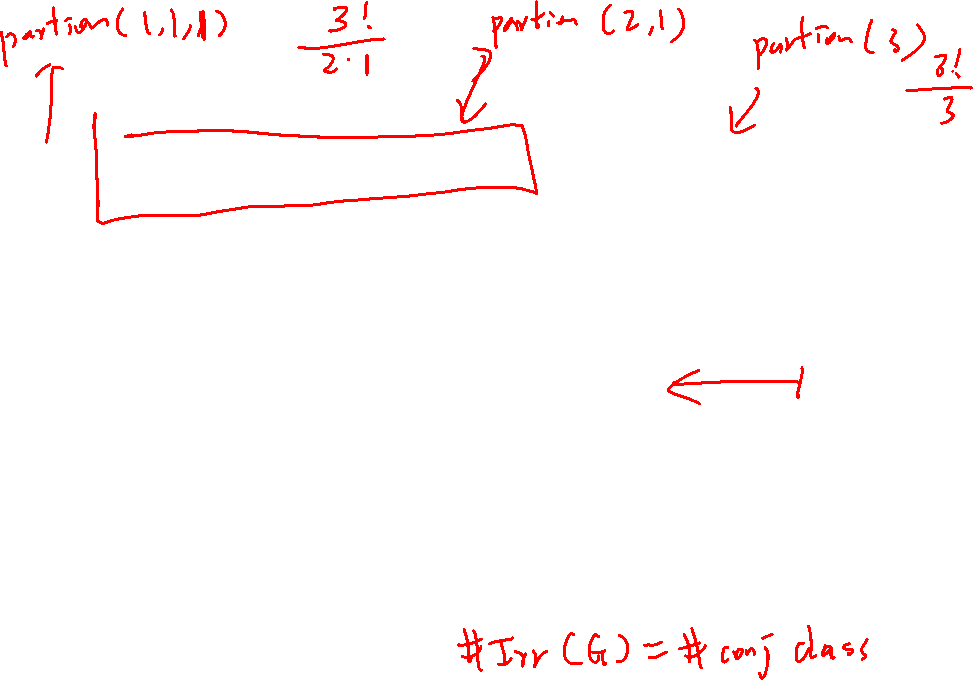 partion(1,1,1)
3!
2·1
partion (2,1)
partion(3)
3!
3
#Irr(G) = # conj class